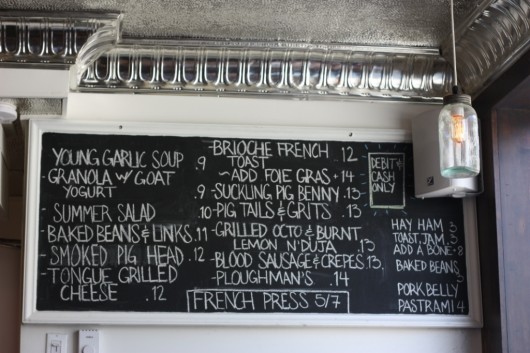 YOUNG GARLIC SOUP .9
GRANOLA W/ GOAT
YOGURT .9
SUMMER SALAD .10
BAKED BEANS & LINKS .11
SMOKED PIG HEAD .12
TONGUE GRILLED
CHEESE .12
BRIOCHE FRENCH .12
TOAST
~ADD FOIE GRAS +14
-SUCKLING PIG BENNY .13
-PIG TAILS & GRITS .13
-GRILLED OCTO & BURNT
LEMON N'DUJA .13
-BLOOD SAUSAGE & CREPES .13
-PLOUGHMAN'S .14
FRENCH PRESS 5/7
DEBIT &
CASH
ONLY
HAY HAM 5
TOAST, JAM 3
ADD A BONE 8
BAKED BEANS
PORK BELLY
PASTRAMI 4